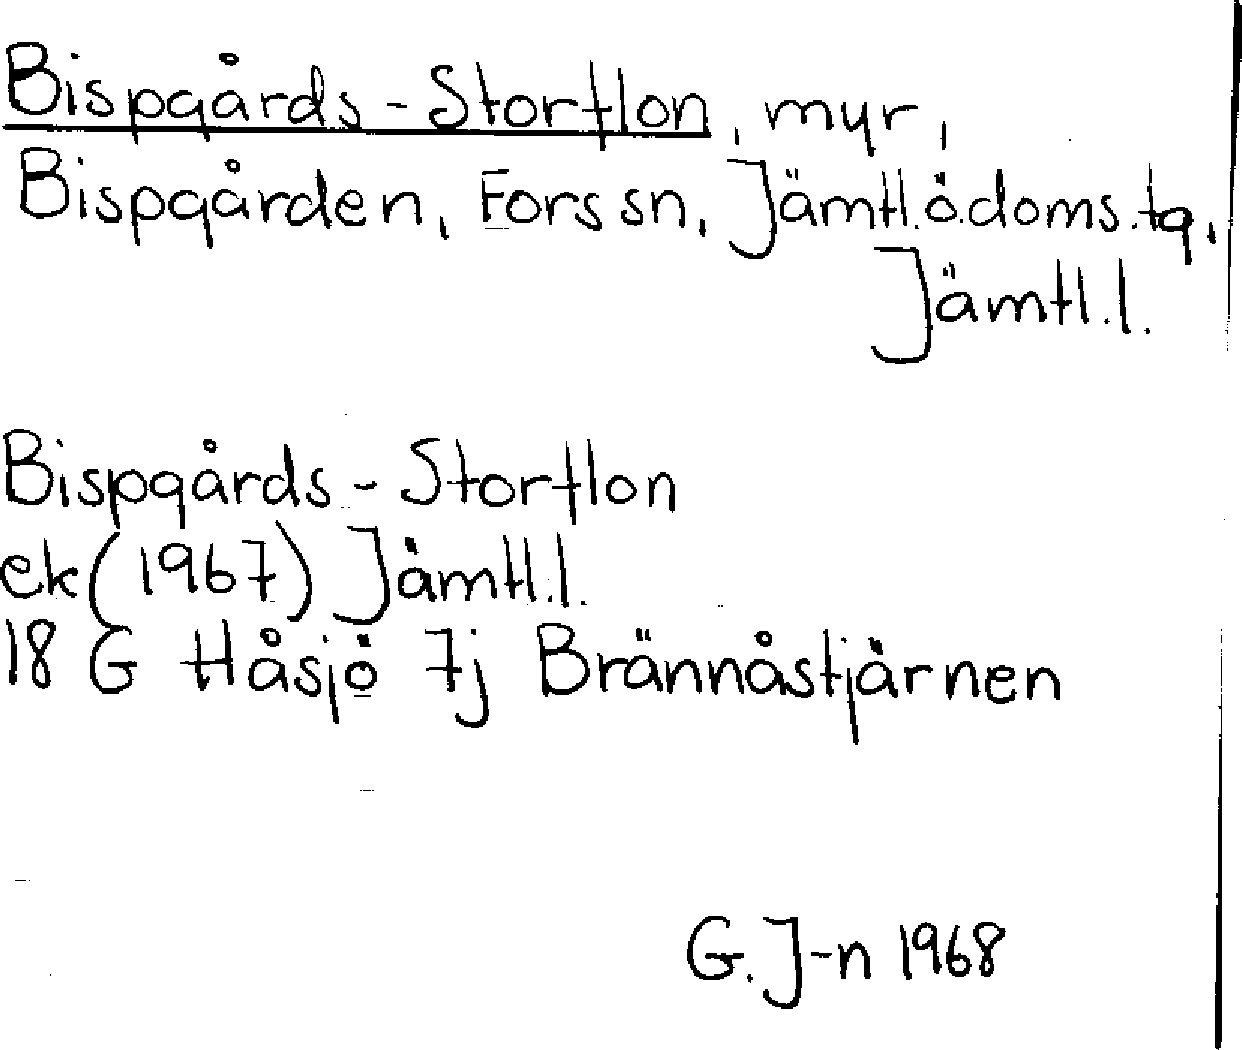 Bispgårds-Storflon, myr,
Bispgården, Fors sn, Jämtl.ö.doms.tg,
Jämtl.l.
Bispgårds-Storflon
ek(1967) Jämtl.l.
18 G Håsjö 7j Brännåstjärnen
G. J-n 1968